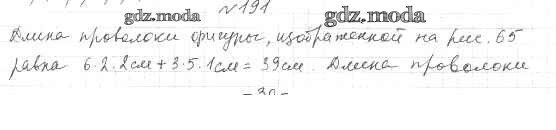 №191
gdz.moda gdz.moda
Длина проволоки фигуры, изображенной на рис. 65
равна 6·2·2см + 3·5·1см = 39см. Длина проволоки
- 30 -